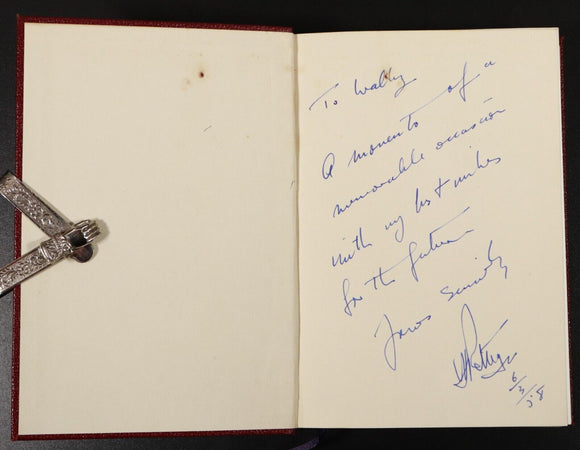 To Wally
A momento of a
memorable occasion
with my best wishes
for the future
Yours Sincerely
6/3/58